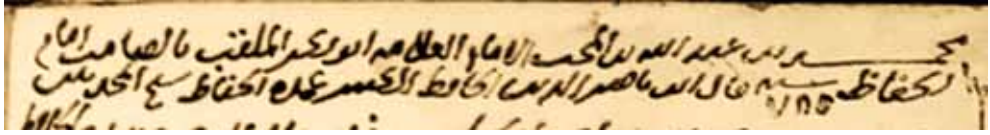 محمد بن عبد الله بن المحب الامام العلامه ابو بكر الملقب بالصامت امام
الحفاظ سنه ٧٨٩ قال ابن ناصر الدين الحافظ الكبير عمدة الحفاظ شيخ المحدثين